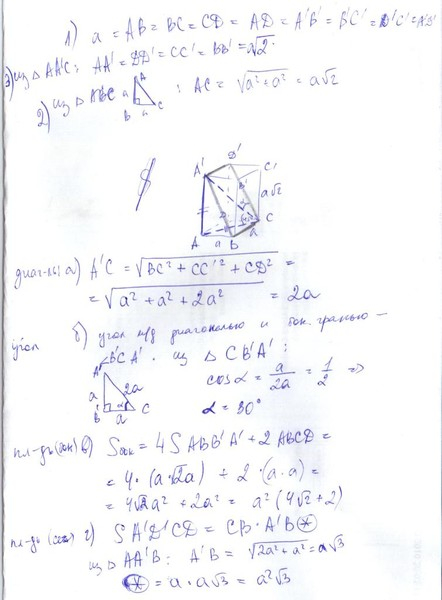 1) a = AB = BC = CD = AD = A'B' = B'C' = D'C' = A'D'
3) из △ AA'C: AA' = DD' = CC' = BB' = a√2.
2) из △ ABC A a B a C : AC = √a²+a² = a√2
A' D' C' B' a√2 D C A a B a
диаг-ль: а) A'C = √BC² + CC'² + CD² =
= √a² + a² + 2a² = 2a
угол б) угол м/д диагональю и бок. гранью –
B'CA'. из △ CB'A':
A' a 2a B' a α C
cos α = a/2a = 1/2 =>
α = 30°
пл-дь (бок) в) Sбок = 4 S ABB'A' + 2 ABCD =
= 4 · (a · √2a) + 2 · (a · a) =
= 4√2a² + 2a² = a² (4√2 + 2)
пл-дь (сеч) г) S A'D'CD = CB · A'B ⊛
из △ AA'B: A'B = √2a² + a² = a√3
⊛ = a · a√3 = a²√3